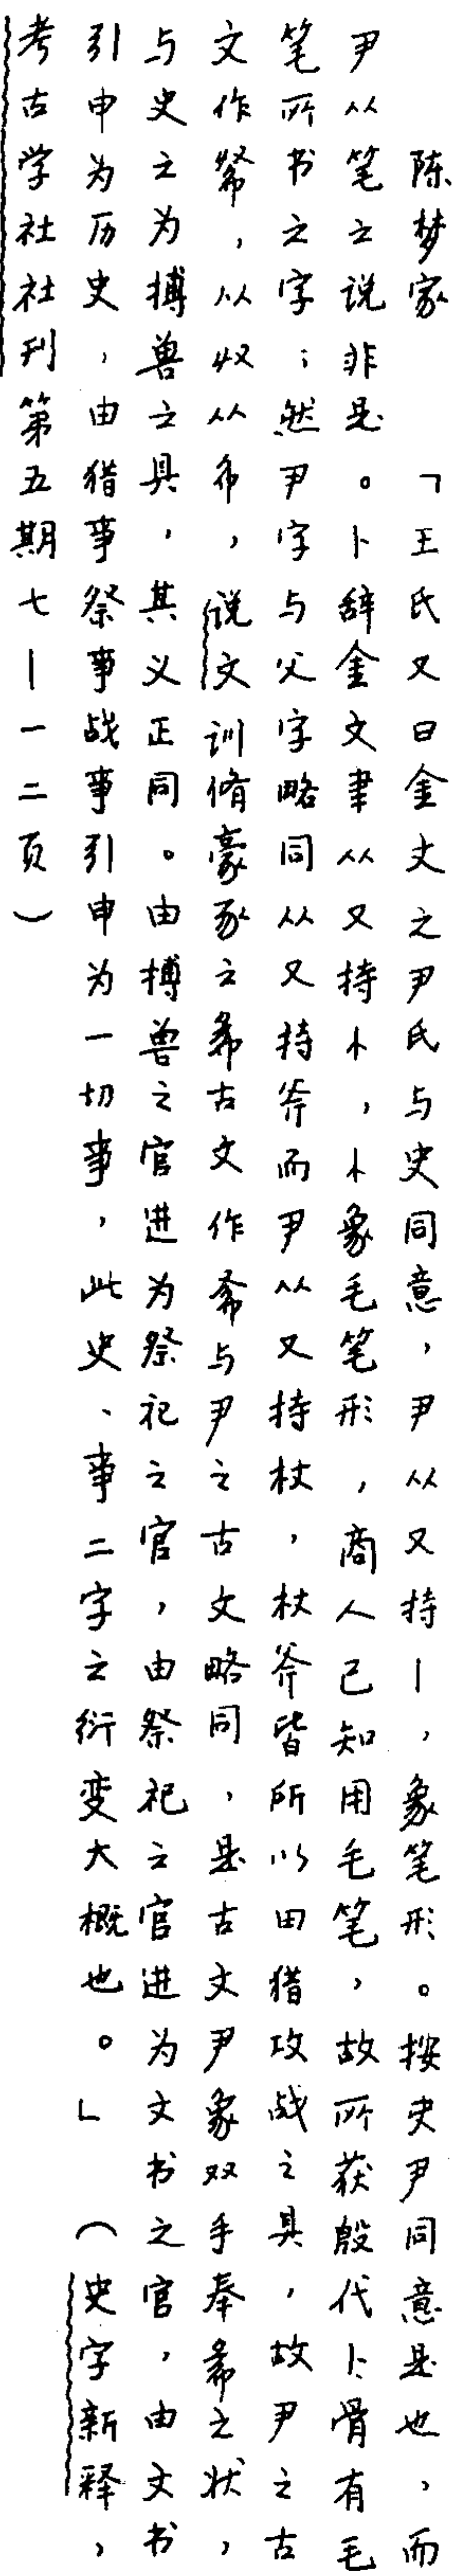 陈梦家　「王氏又曰金文之尹氏与史同意，尹从又持丨，象笔形。按史尹同意是也，而
尹从笔之说非是。卜辞金文聿从又持⺊，⺊象毛笔形，商人已知用毛笔，故所获殷代卜骨有毛
笔所书之字；然尹字与父字略同从又持斧而尹从又持杖，杖斧皆所以田猎攻战之具，故尹之古
文作𢑚，从𠬞从㣇，说文训脩豪豕之㣇古文作𢑓与尹之古文略同，是古文尹象双手奉㣇之状，
与史之为搏兽之具，其义正同。由搏兽之官进为祭祀之官，由祭祀之官进为文书之官，由文书
引申为历史，由猎事祭事战事引申为一切事，此史、事二字之衍变大概也。」（史字新释，
考古学社社刊第五期七—一二页）